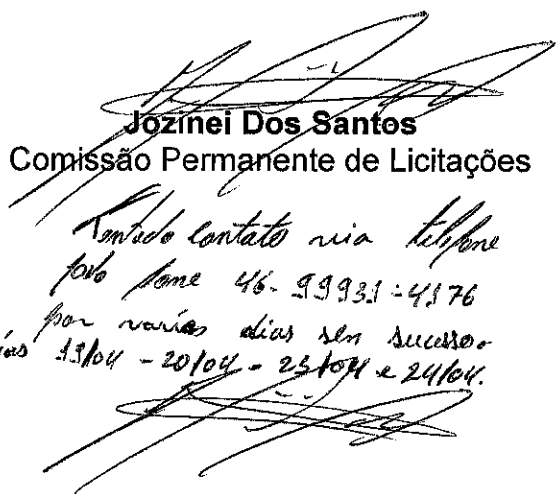 Jozinei Dos Santos
Comissão Permanente de Licitações
Tentado contato via telefone
pelo fone 46-99931-4176
por varios dias sen sucesso.
19/04 - 20/04 - 23/04 e 24/04.